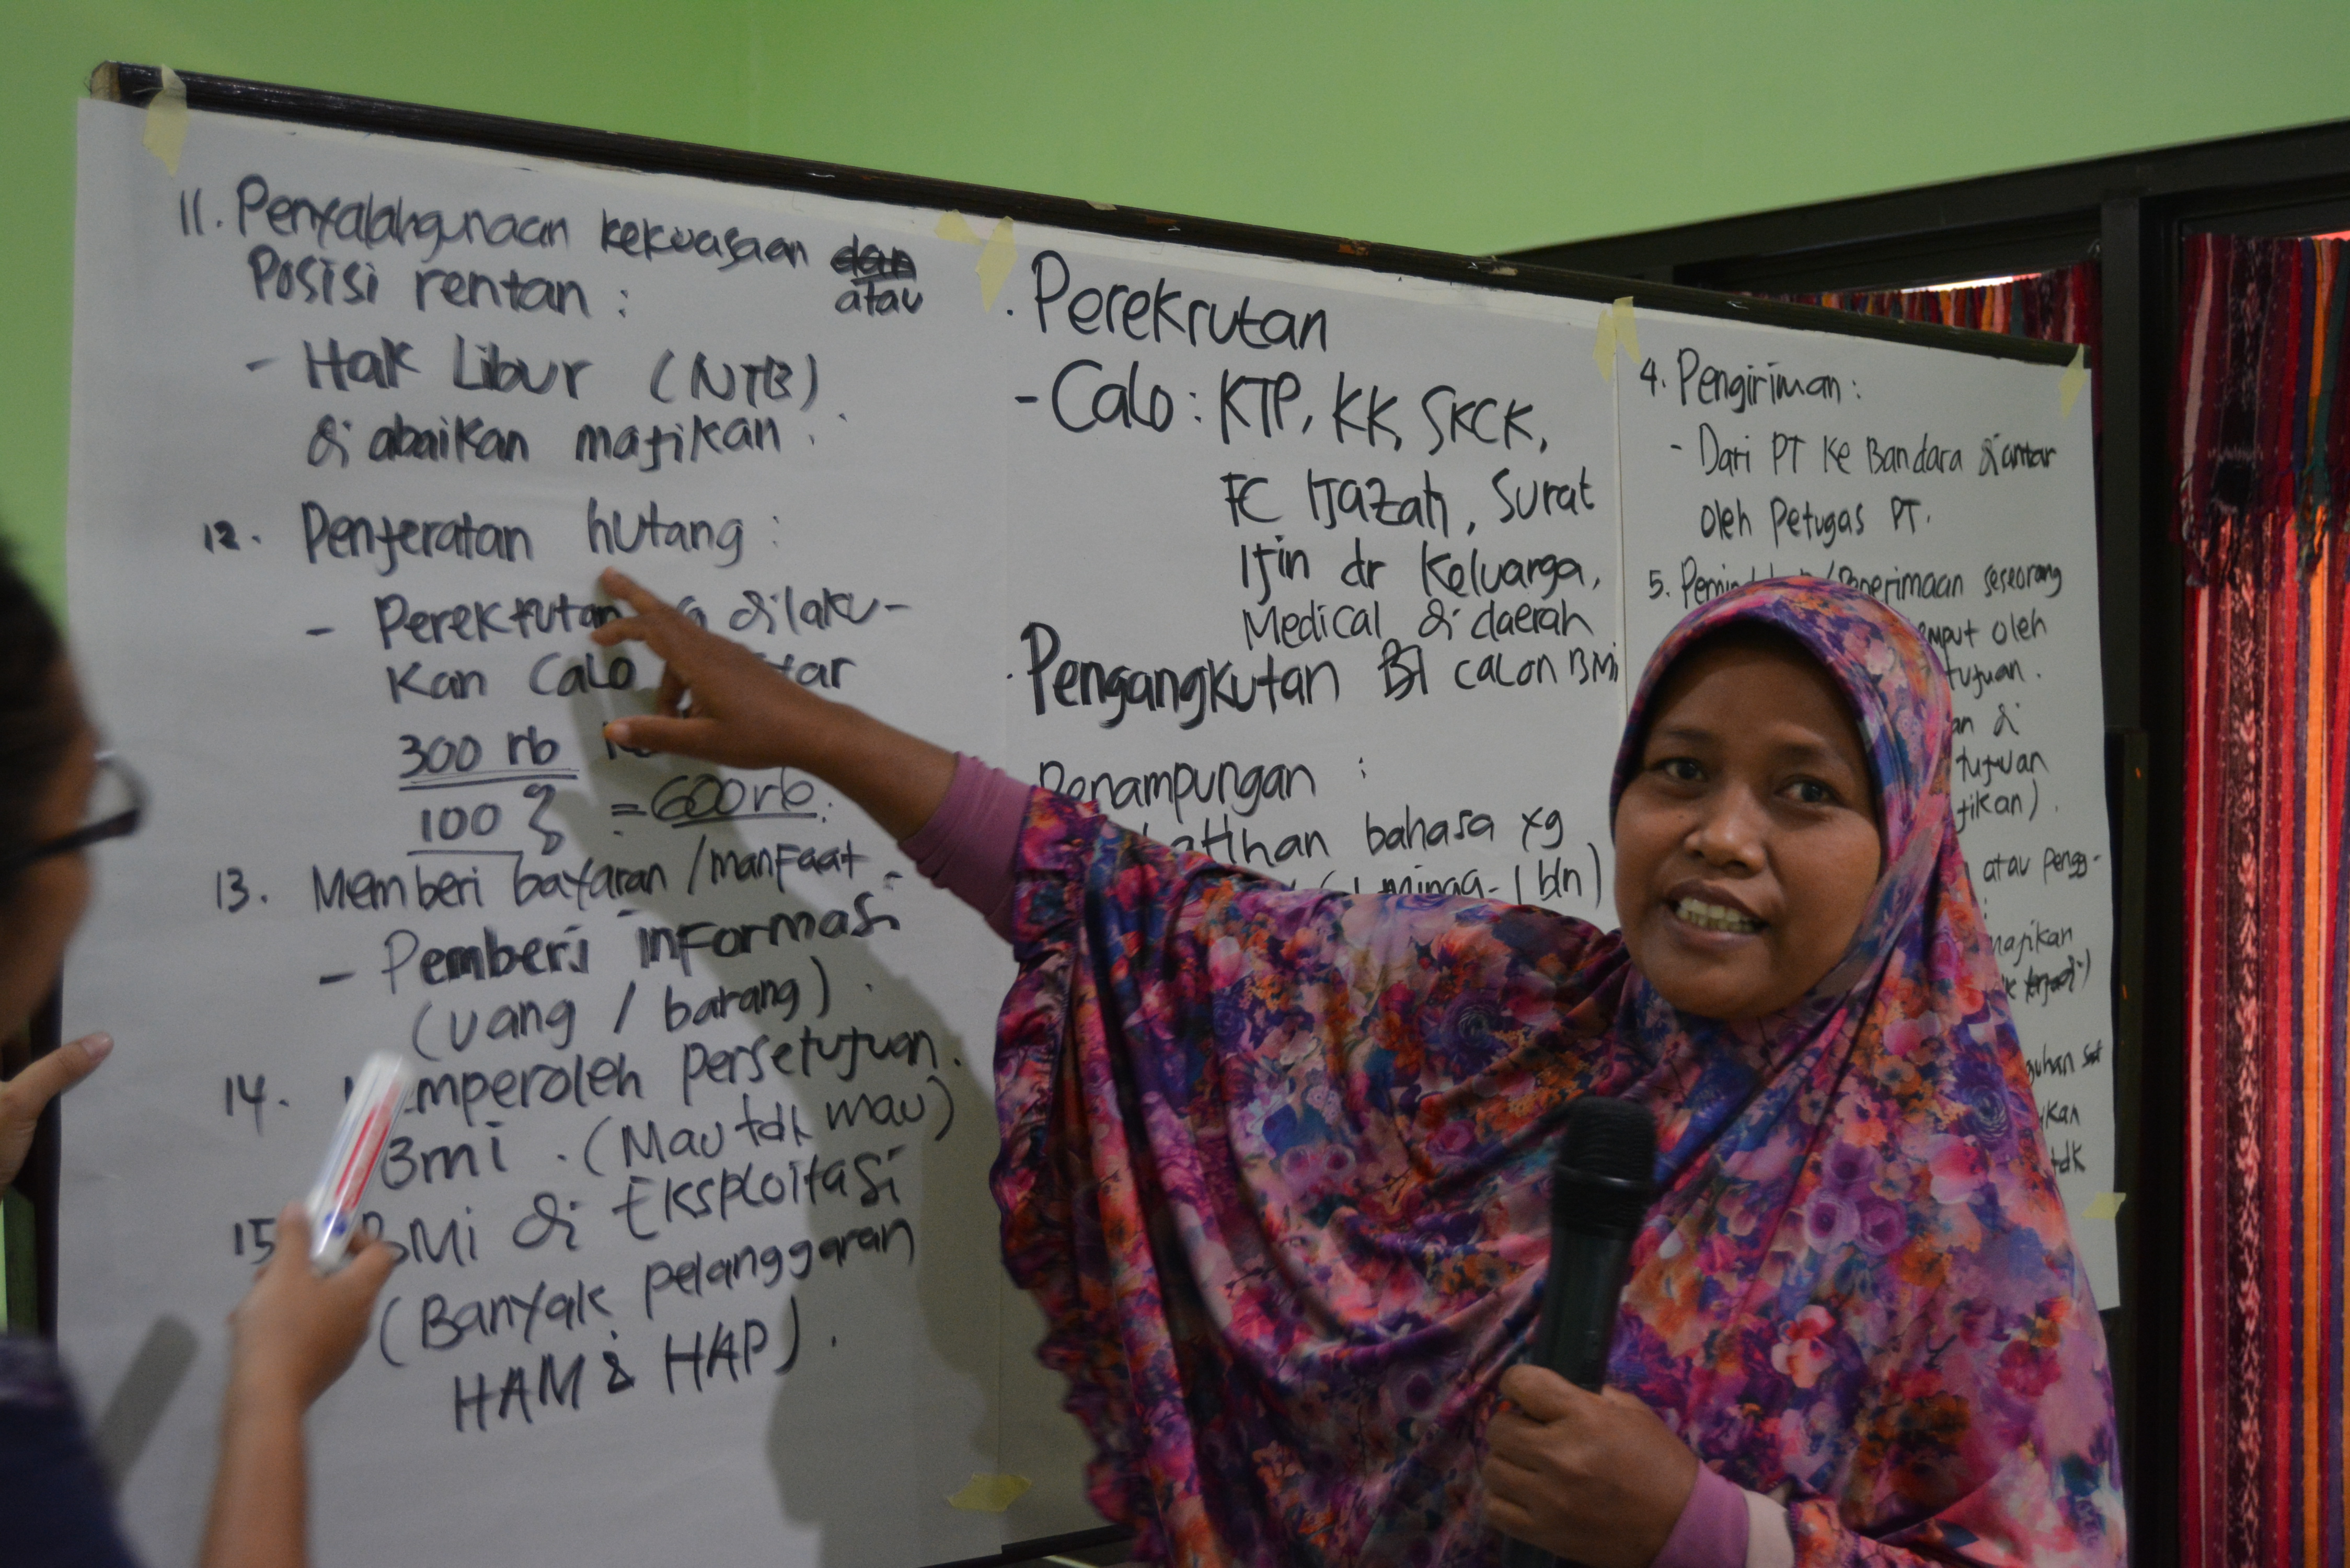 11. Penyalahgunaan kekuasaan dan
atau
Posisi rentan :
- Hak Libur (NTB)
di abaikan majikan .
12. Penjeratan hutang :
- Perekrutan dilaku-
kan Calo
300 rb
100 = 600 rb.
13. Memberi bayaran / manfaat -
- Pemberi informasi
(uang / barang) .
14. persetujuan.
BMI . (Mau tdk mau)
15 BMI di Eksploitasi
(Banyak pelanggaran
HAM & HAP) .
. Perekrutan
- Calo : KTP, KK, SKCK,
FC Ijazah, Surat
Ijin dr Keluarga,
Medical di daerah
. Pengangkutan calon BMI
Penampungan :
bahasa yg
minga - 1 bln)
4. Pengiriman :
- Dari PT Ke Bandara diantar
oleh Petugas PT.
5. Penerimaan seseorang
oleh
di
atau pengg-
majikan
tdk